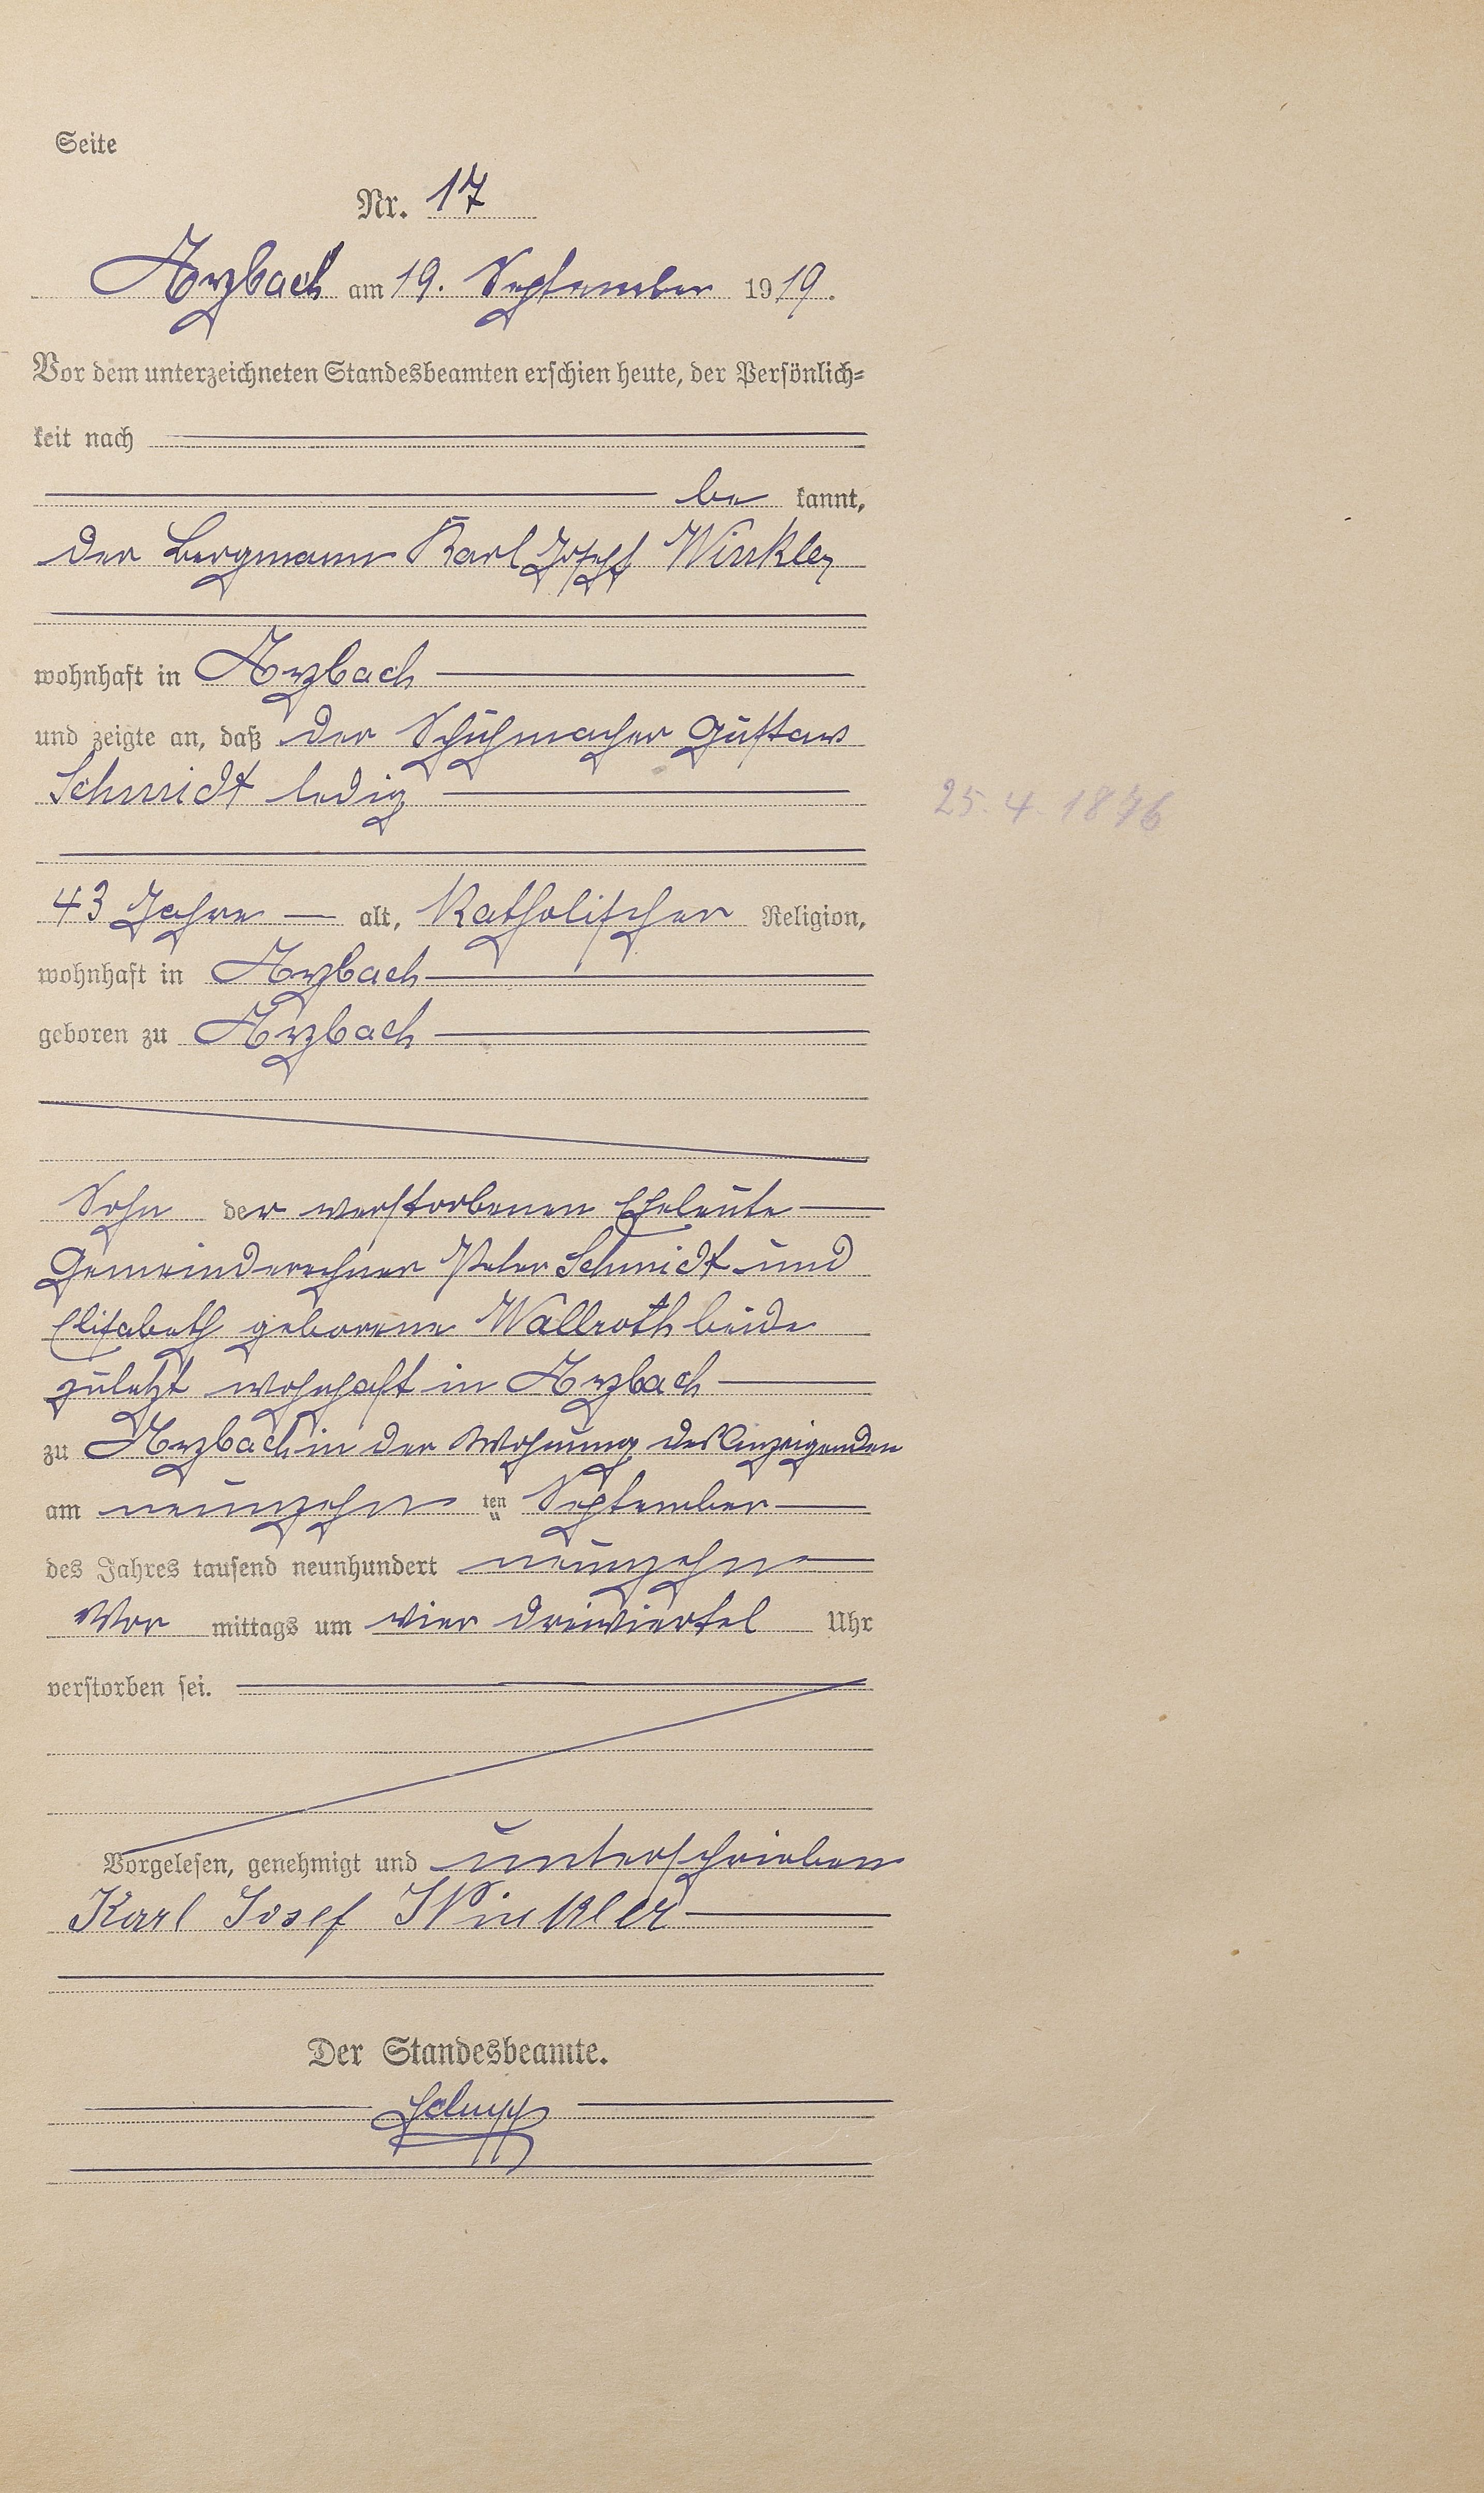 Seite
Nr. 17
Arzbach am 19. September 1919.
Vor dem unterzeichneten Standesbeamten erschien heute, der Persönlich=
keit nach
be kannt,
der Bergmann Karl Joseph Winkler
wohnhaft in Arzbach
und zeigte an, daß der Schuhmacher Gustav
Schmidt ledig
25. 4. 1876
43 Jahre alt, katholischer Religion,
wohnhaft in Arzbach
geboren zu Arzbach
Sohn der verstorbenen Eheleute
Gemeinderechner Peter Schmidt und
Elisabeth geborene Wallroth beide
zuletzt wohnhaft in Arzbach
zu Arzbach in der Wohnung des Anzeigenden
am neunzehn ten September
des Jahres tausend neunhundert neunzehn
Vor mittags um vier dreiviertel Uhr
verstorben sei.
Vorgelesen, genehmigt und unterschrieben
Karl Josef Winkler
Der Standesbeamte.
Schupp